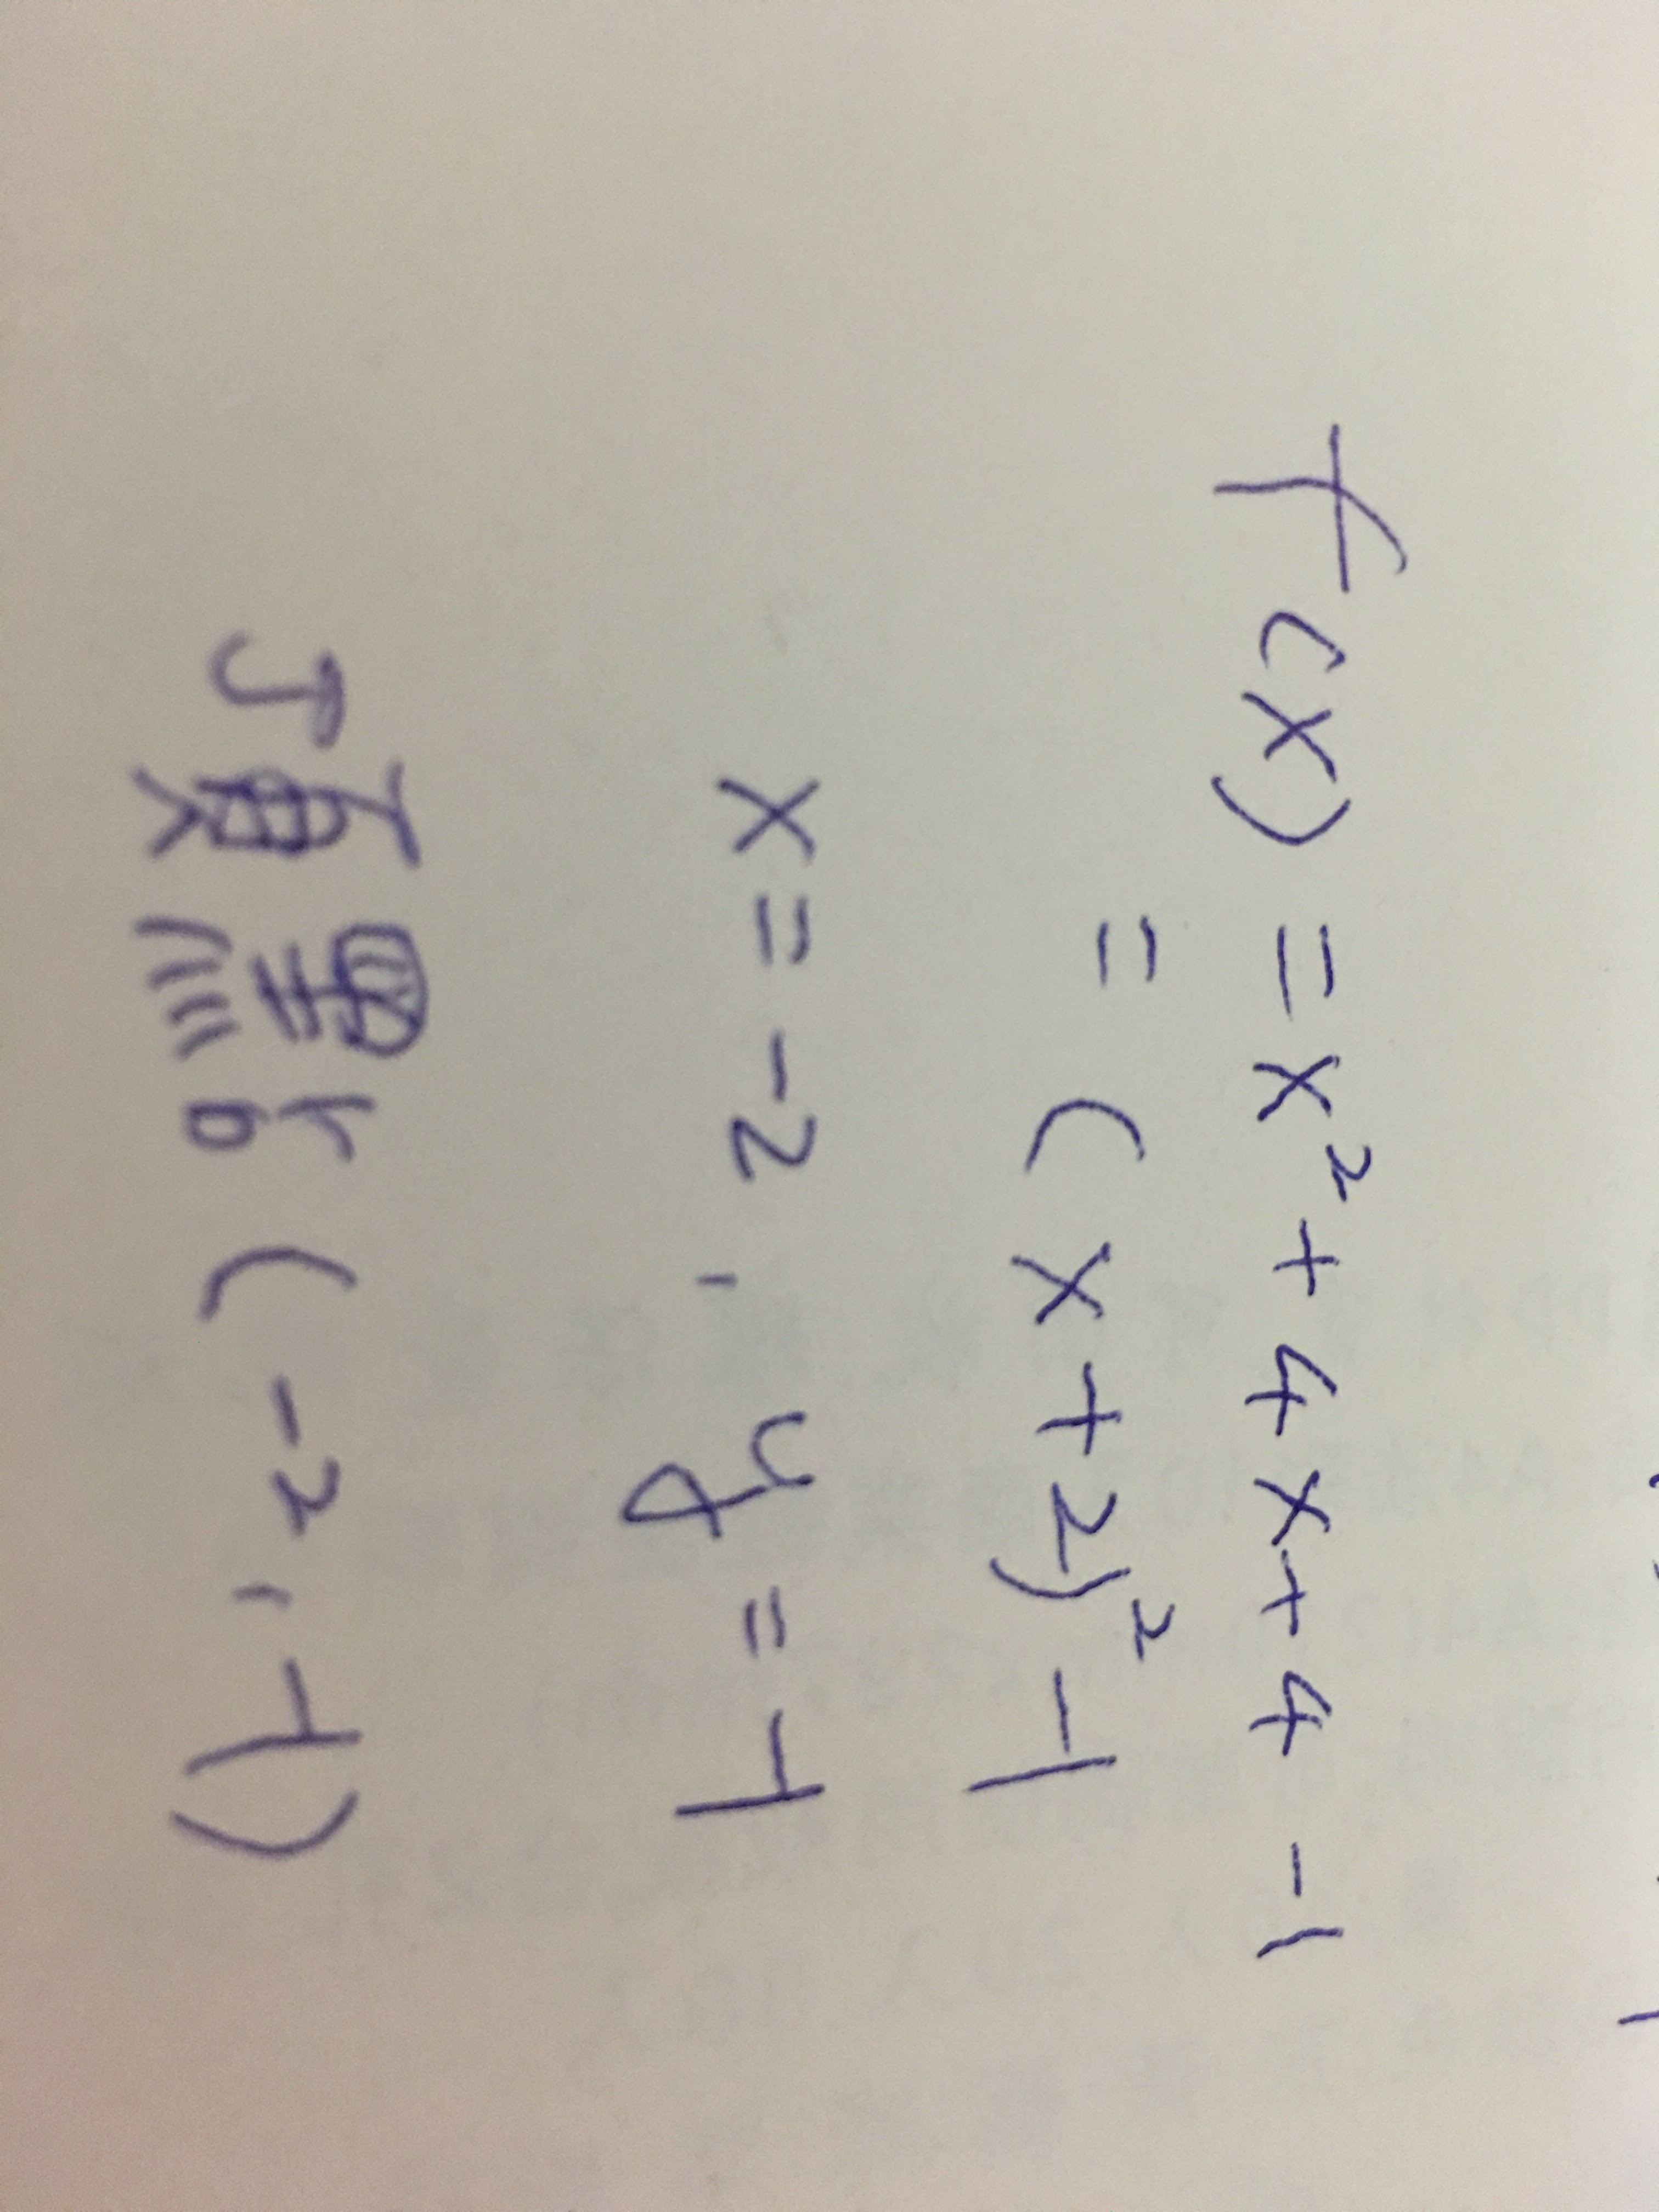 f(x) = x² + 4x + 4 - 1
= (x + 2)² - 1
x = -2 , y = -1
頂點 (-2, -1)